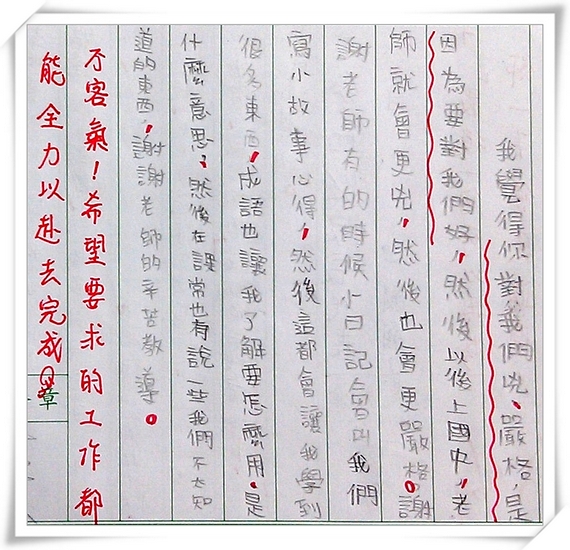 我覺得你對我們兇、嚴格，是
因為要對我們好，然後以後上國中，老
師就會更兇，然後也會更嚴格。謝
謝老師有的時候小日記會叫我們
寫小故事心得，然後這都會讓我學到
很多東西，成語也讓我了解要怎麼用，是
什麼意思，然後在課常也有說一些我們不太知
道的東西，謝謝老師的辛苦教導。
不客氣！希望要求的工作都
能全力以赴去完成
章